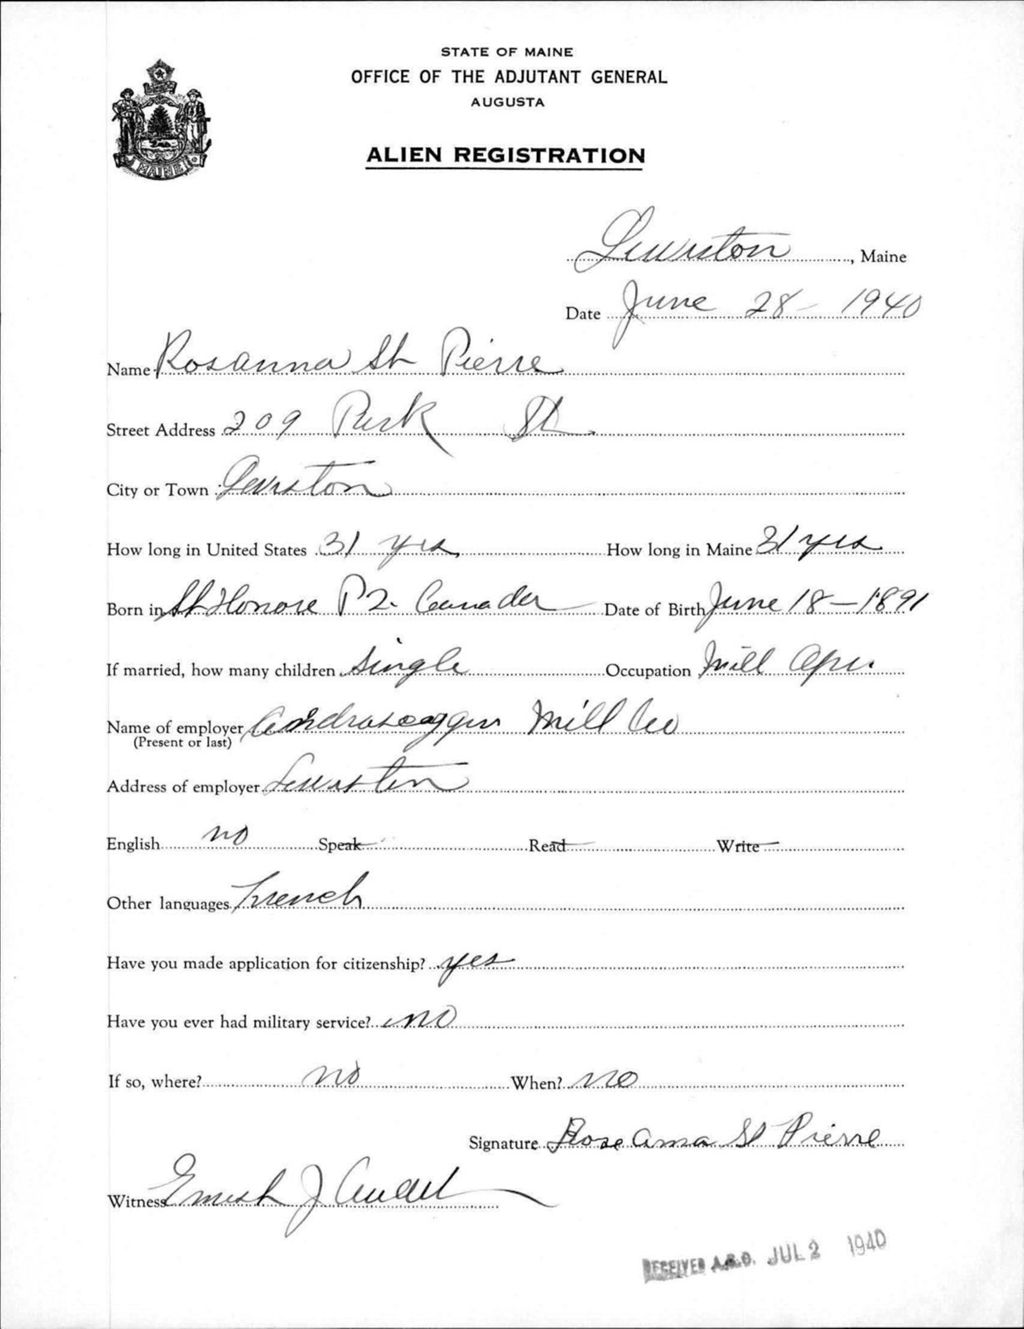 STATE OF MAINE
OFFICE OF THE ADJUTANT GENERAL
AUGUSTA
ALIEN REGISTRATION
MAINE
Lewiston, Maine
Date June 28 - 1940
Name Rosanna St Pierre
Street Address 209 Park St
City or Town Lewiston
How long in United States 31 yrs How long in Maine 31 yrs
Born in St Honore P2. Canada Date of Birth June 18-1891
If married, how many children Single Occupation Mill Oper.
Name of employer Androscoggin Mill Co
(Present or last)
Address of employer Lewiston
English no Speak Read Write
Other languages French
Have you made application for citizenship? yes
Have you ever had military service? no
If so, where? no When? no
Signature Rose Anna St Pierre
Witness J
RECEIVED A.G.O. JUL 2 1940